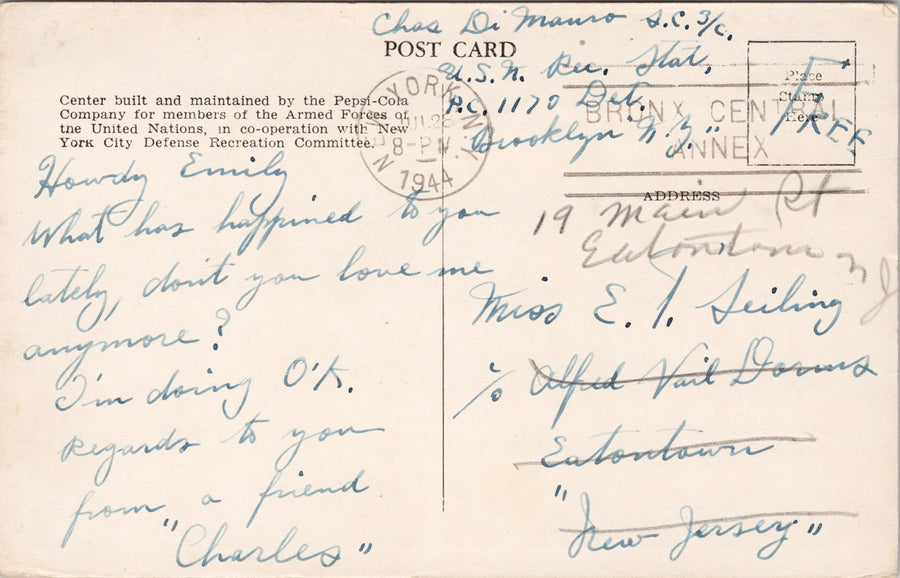 Chas Di Mauro S.C. 3/c.
POST CARD
U.S.N. Rec. Stat,
R.C. 1170 Det.
Brooklyn N.Y."
Place
Stamp
Here
FREE
NEW YORK, N.Y.
8-PM
1944
BRONX CENTRAL
ANNEX
Center built and maintained by the Pepsi-Cola
Company for members of the Armed Forces of
the United Nations, in co-operation with New
York City Defense Recreation Committee.
Howdy Emily
What has happined to you
lately, don't you love me
anymore?
I'm doing O'K.
Regards to you
from a friend
"Charles"
ADDRESS
19 Main Rt
Eatontown N J
Miss E. I. Seiling
c/o Alfred Vail Dorms
Eatontown
"New Jersey"